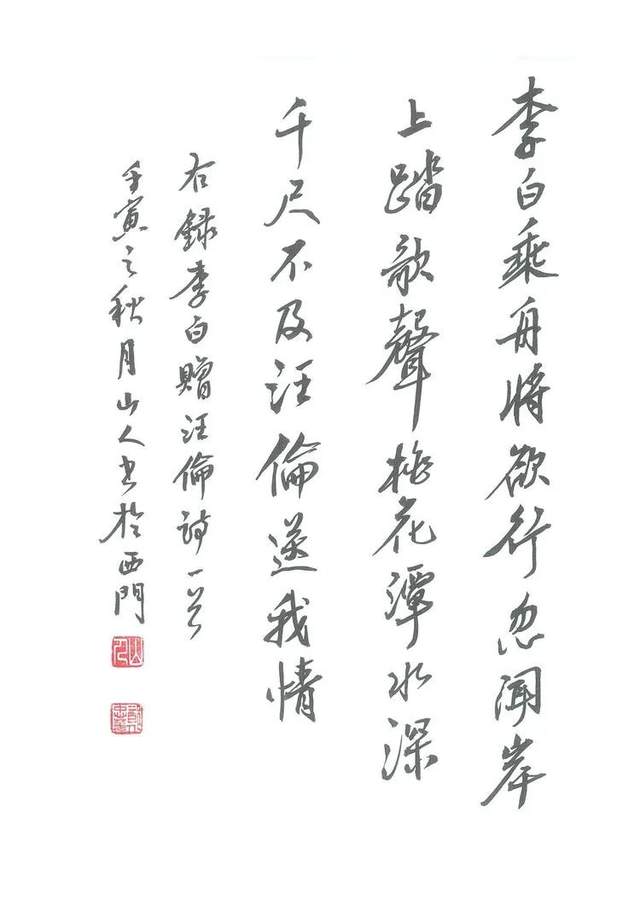 李白乘舟將欲行忽聞岸
上踏歌聲桃花潭水深
千尺不及汪倫送我情
右録李白贈汪倫詩一首
壬寅之秋月山人書於西門
山人